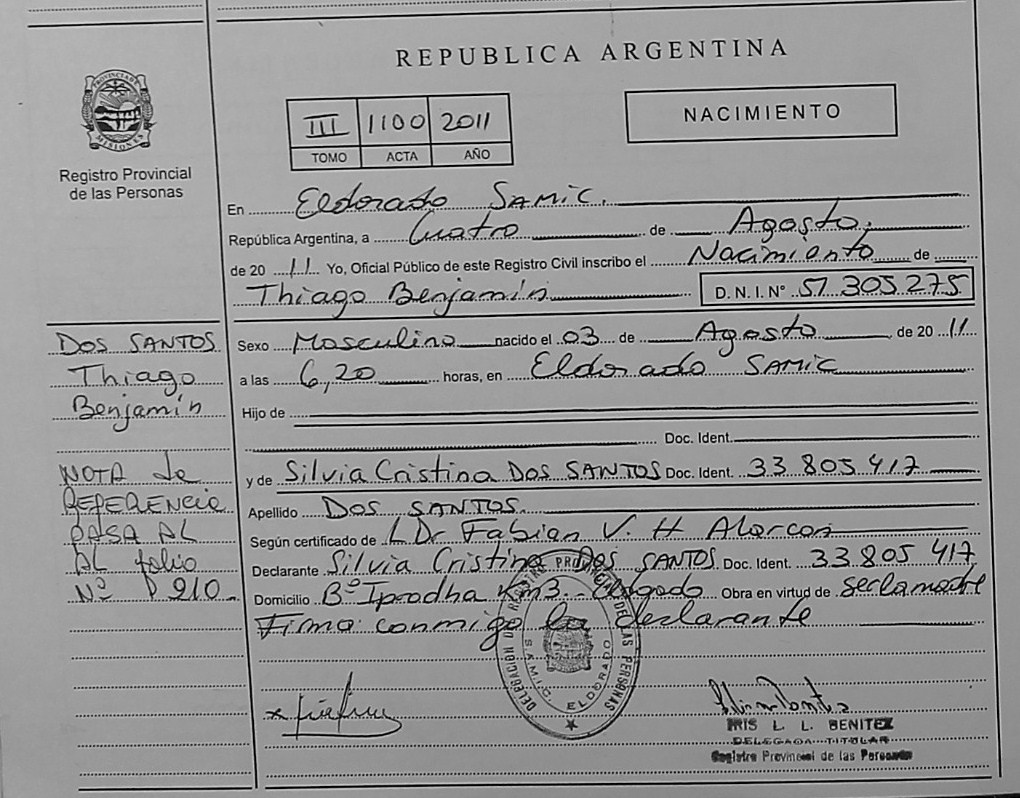 REPUBLICA ARGENTINA
PROVINCIA DE MISIONES
Registro Provincial
de las Personas
III 1100 2011
TOMO ACTA AÑO
NACIMIENTO
En Eldorado SAMIC.
República Argentina, a Cuatro de Agosto.
de 20 11 Yo, Oficial Público de este Registro Civil inscribo el Nacimiento de
Thiago Benjamín D.N.I.N° 51.305.275
Sexo Masculino nacido el 03 de Agosto, de 20 11
a las 6,20 horas, en Eldorado SAMIC
Hijo de
Doc. Ident.
y de Silvia Cristina DOS SANTOS Doc. Ident. 33.805.417
Apellido DOS SANTOS.
Según certificado de Dr Fabian V. H Alarcon
Declarante Silvia Cristina DOS SANTOS. Doc. Ident. 33.805 417
Domicilio B° Iprodha Km3.- Obra en virtud de ser la madre
Firma conmigo la declarante
DOS SANTOS
Thiago
Benjamín
NOTA de
REFERENCIA
PASA AL
AL folio
N° 210.-
DELEGACION DE REGISTRO PROVINCIAL DE LAS PERSONAS
S.A.M.I.C. ELDORADO
IRIS L. L. BENITEZ
DELEGADA TITULAR
Registro Provincial de las Personas